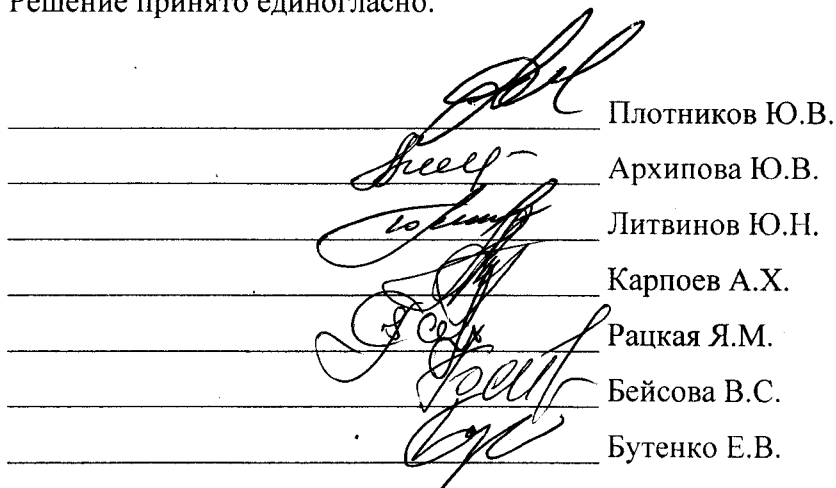 Решение принято единогласно.
Плотников Ю.В.
Архипова Ю.В.
Литвинов Ю.Н.
Карпоев А.Х.
Рацкая Я.М.
Бейсова В.С.
Бутенко Е.В.